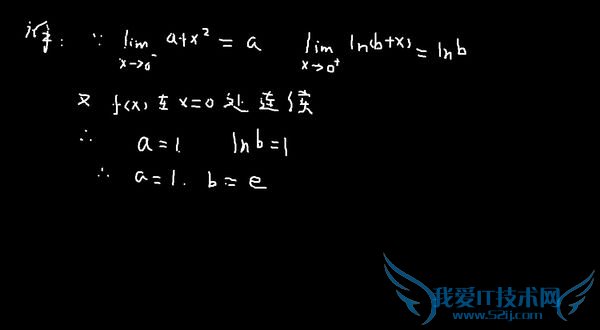 解: ∵ lim x→0⁻ a+x² = a lim x→0⁺ ln(b+x) = ln b
又 f(x) 在 x=0 处连续
∴ a=1 ln b=1
∴ a=1. b=e
我爱IT技术网
www.52ij.com